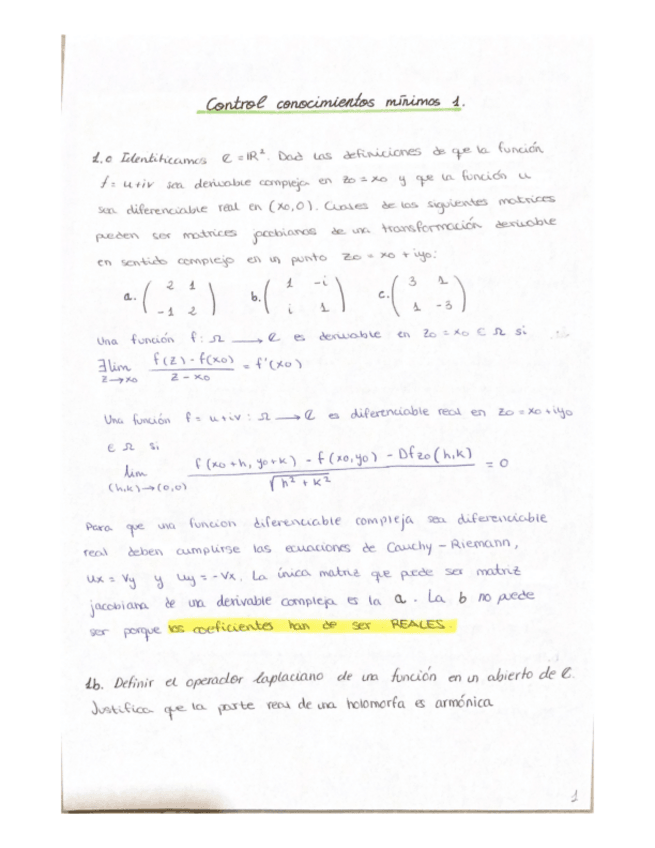 Control conocimientos mínimos 1.
1.a Identificamos ℂ = ℝ². Dad las definiciones de que la función
f = u+iv sea derivable compleja en z₀ = x₀ y que la función u
sea diferenciable real en (x₀,0). Cuales de las siguientes matrices
pueden ser matrices jacobianas de una transformación derivable
en sentido complejo en un punto z₀ = x₀ + iy₀:
a. ( 2 1 ; -1 2 ) b. ( 1 -i ; i 1 ) c. ( 3 1 ; 1 -3 )
Una función f: Ω → ℂ es derivable en z₀ = x₀ ∈ Ω si
∃ lim z→x₀ (f(z) - f(x₀)) / (z - x₀) = f'(x₀)
Una función f = u+iv : Ω → ℂ es diferenciable real en z₀ = x₀+iy₀
∈ Ω si
lim (h,k)→(0,0) (f(x₀+h, y₀+k) - f(x₀,y₀) - Dfz₀(h,k)) / √(h² + k²) = 0
Para que una funcion diferenciable compleja sea diferenciable
real deben cumplirse las ecuaciones de Cauchy - Riemann,
ux = vy y uy = -vx. La única matriz que puede ser matriz
jacobiana de una derivable compleja es la a. La b no puede
ser porque los coeficientes han de ser REALES.
1b. Definir el operador laplaciano de una función en un abierto de ℂ.
Justifica que la parte real de una holomorfa es armónica
1